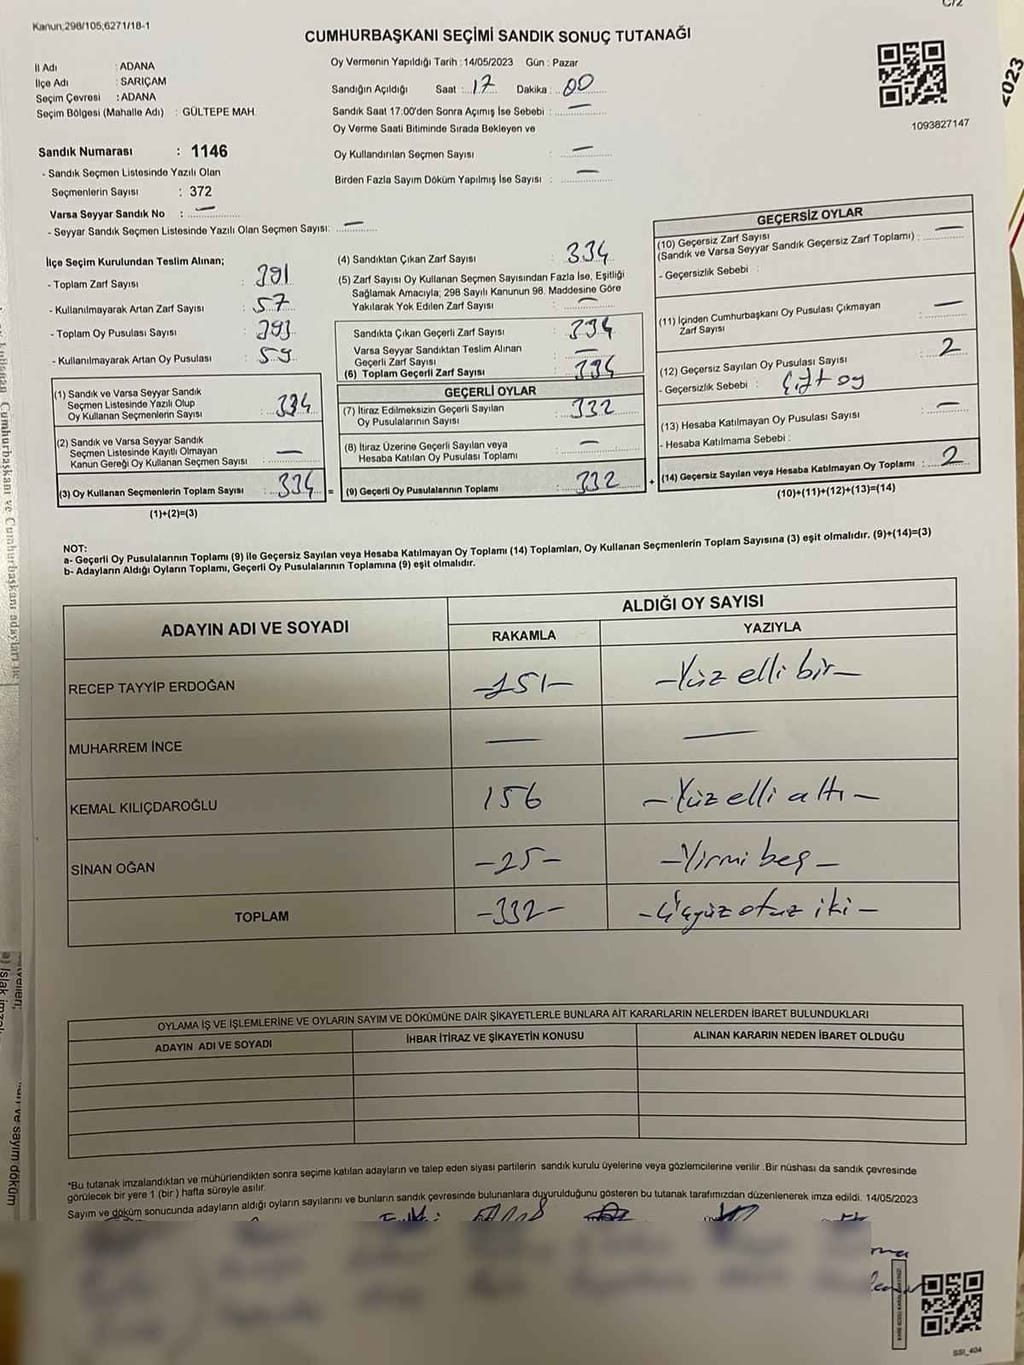 Kanun;298/105;6271/18-1
C/2
CUMHURBAŞKANI SEÇİMİ SANDIK SONUÇ TUTANAĞI
İl Adı : ADANA
İlçe Adı : SARIÇAM
Seçim Çevresi : ADANA
Seçim Bölgesi (Mahalle Adı) : GÜLTEPE MAH
Sandık Numarası : 1146
- Sandık Seçmen Listesinde Yazılı Olan
Seçmenlerin Sayısı : 372
Varsa Seyyar Sandık No : —
- Seyyar Sandık Seçmen Listesinde Yazılı Olan Seçmen Sayısı: —
Oy Vermenin Yapıldığı Tarih : 14/05/2023 Gün : Pazar
Sandığın Açıldığı Saat : 17 Dakika : 00
Sandık Saat 17:00'den Sonra Açımış İse Sebebi : —
Oy Verme Saati Bitiminde Sırada Bekleyen ve
Oy Kullandırılan Seçmen Sayısı : —
Birden Fazla Sayım Döküm Yapılmış İse Sayısı : —
1093827147
2023
İlçe Seçim Kurulundan Teslim Alınan;
- Toplam Zarf Sayısı : 391
- Kullanılmayarak Artan Zarf Sayısı : 57
- Toplam Oy Pusulası Sayısı : 393
- Kullanılmayarak Artan Oy Pusulası : 59
(1) Sandık ve Varsa Seyyar Sandık
Seçmen Listesinde Yazılı Olup
Oy Kullanan Seçmenlerin Sayısı : 334
(2) Sandık ve Varsa Seyyar Sandık
Seçmen Listesinde Kayıtlı Olmayan
Kanun Gereği Oy Kullanan Seçmen Sayısı : —
(3) Oy Kullanan Seçmenlerin Toplam Sayısı : 334 =
(1)+(2)=(3)
(4) Sandıktan Çıkan Zarf Sayısı : 334
(5) Zarf Sayısı Oy Kullanan Seçmen Sayısından Fazla İse, Eşitliği
Sağlamak Amacıyla, 298 Sayılı Kanunun 98. Maddesine Göre
Yakılarak Yok Edilen Zarf Sayısı : —
Sandıkta Çıkan Geçerli Zarf Sayısı : 334
Varsa Seyyar Sandıktan Teslim Alınan
Geçerli Zarf Sayısı : —
(6) Toplam Geçerli Zarf Sayısı : 334
GEÇERLİ OYLAR
(7) İtiraz Edilmeksizin Geçerli Sayılan
Oy Pusulalarının Sayısı : 332
(8) İtiraz Üzerine Geçerli Sayılan veya
Hesaba Katılan Oy Pusulası Toplamı : —
(9) Geçerli Oy Pusulalarının Toplamı : 332 +
GEÇERSİZ OYLAR
(10) Geçersiz Zarf Sayısı
(Sandık ve Varsa Seyyar Sandık Geçersiz Zarf Toplamı) : —
- Geçersizlik Sebebi :
(11) İçinden Cumhurbaşkanı Oy Pusulası Çıkmayan
Zarf Sayısı : —
(12) Geçersiz Sayılan Oy Pusulası Sayısı : 2
- Geçersizlik Sebebi : Çift oy
(13) Hesaba Katılmayan Oy Pusulası Sayısı : —
- Hesaba Katılmama Sebebi :
(14) Geçersiz Sayılan veya Hesaba Katılmayan Oy Toplamı : 2
(10)+(11)+(12)+(13)=(14)
NOT:
a- Geçerli Oy Pusulalarının Toplamı (9) ile Geçersiz Sayılan veya Hesaba Katılmayan Oy Toplamı (14) Toplamları, Oy Kullanan Seçmenlerin Toplam Sayısına (3) eşit olmalıdır. (9)+(14)=(3)
b- Adayların Aldığı Oyların Toplamı, Geçerli Oy Pusulalarının Toplamına (9) eşit olmalıdır.
ADAYIN ADI VE SOYADI
ALDIĞI OY SAYISI
RAKAMLA YAZIYLA
RECEP TAYYİP ERDOĞAN -151- -Yüz elli bir-
MUHARREM İNCE — —
KEMAL KILIÇDAROĞLU 156 -Yüz elli altı-
SİNAN OĞAN -25- -Yirmi beş-
TOPLAM -332- -Üçyüz otuz iki-
OYLAMA İŞ VE İŞLEMLERİNE VE OYLARIN SAYIM VE DÖKÜMÜNE DAİR ŞİKAYETLERLE BUNLARA AİT KARARLARIN NELERDEN İBARET BULUNDUKLARI
ADAYIN ADI VE SOYADI İHBAR İTİRAZ VE ŞİKAYETİN KONUSU ALINAN KARARIN NEDEN İBARET OLDUĞU
*Bu tutanak imzalandıktan ve mühürlendikten sonra seçime katılan adayların ve talep eden siyasi partilerin sandık kurulu üyelerine veya gözlemcilerine verilir .Bir nüshası da sandık çevresinde
görülecek bir yere 1 (bir) hafta süreyle asılır.
Sayım ve döküm sonucunda adayların aldığı oyların sayılarını ve bunların sandık çevresinde bulunanlara duyurulduğunu gösteren bu tutanak tarafımızdan düzenlenerek imza edildi. 14/05/2023
SSI_404